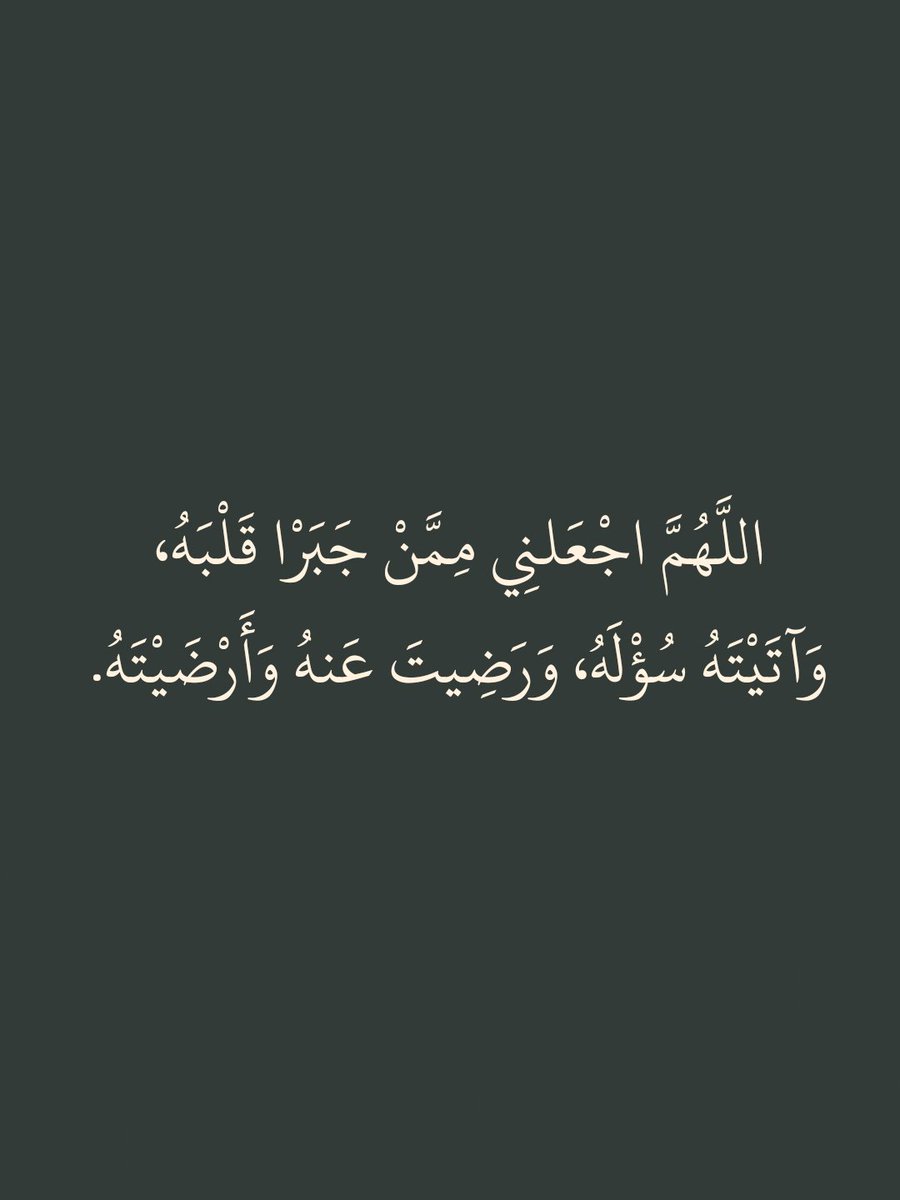 اللَّهُمَّ اجْعَلنِي مِمَّنْ جَبَرْا قَلْبَهُ،
وَآتَيْتَهُ سُؤْلَهُ، وَرَضِيتَ عَنهُ وَأَرْضَيْتَهُ.